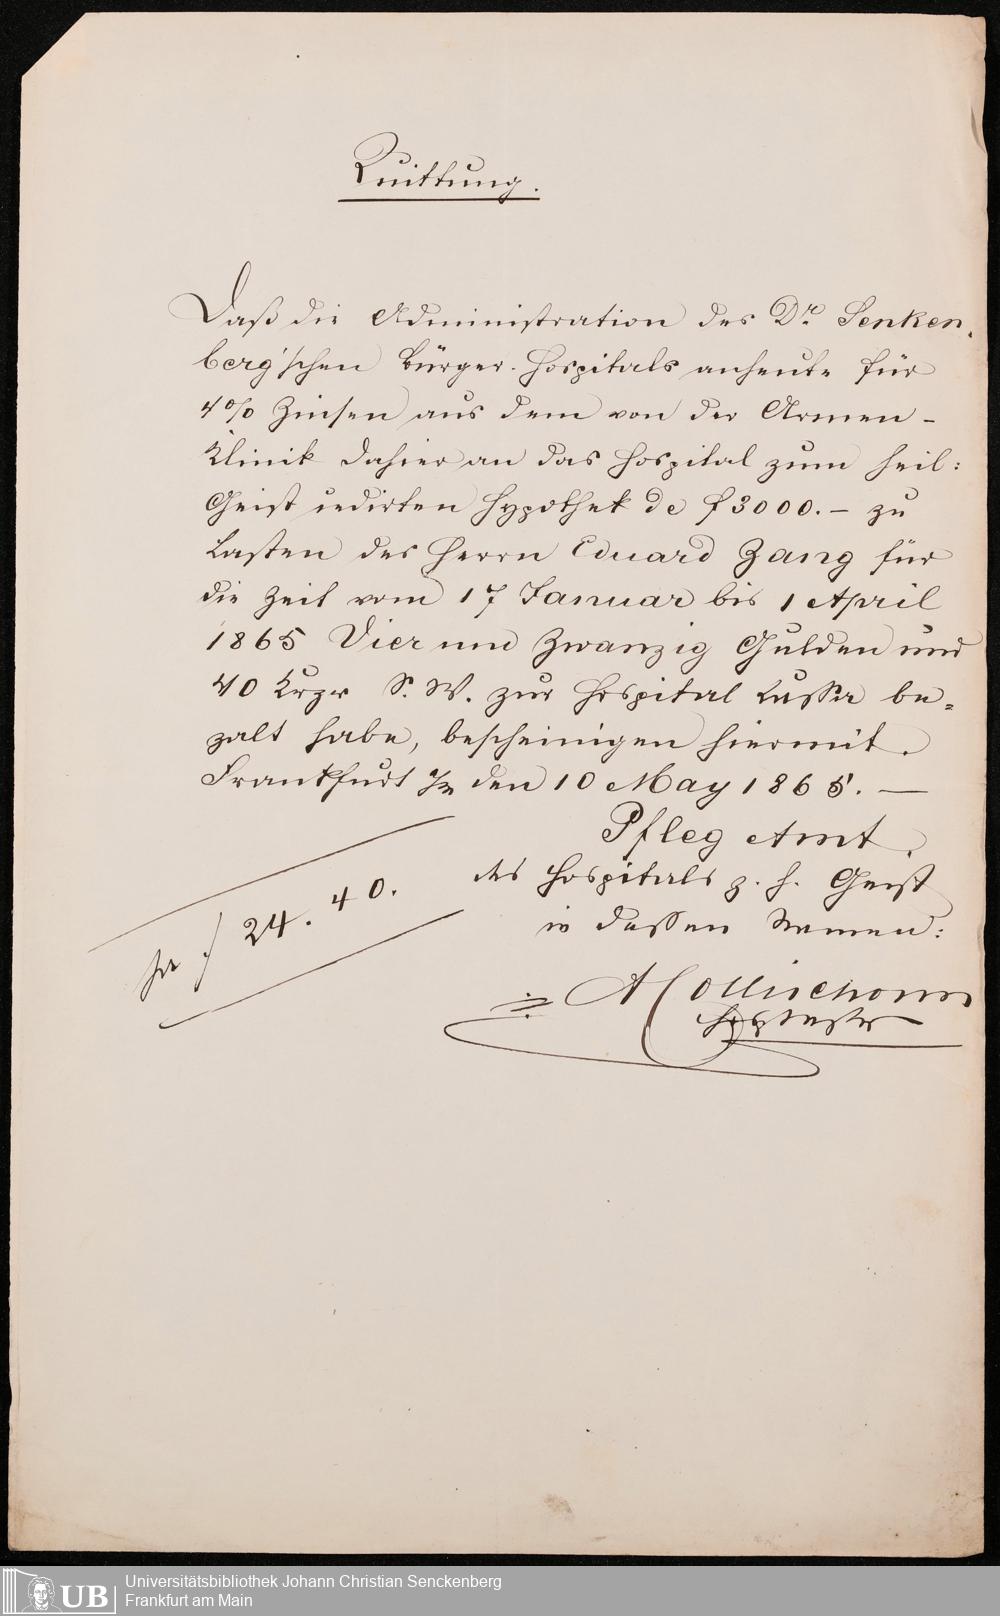 Quittung.
Daß die Administration des Dr. Senken-
berg'schen Bürger-Hospitals anheute für
4% Zinsen aus dem von der Armen-
Klinik dahier an das Hospital zum heil:
Geist cedirten Hypothek de f 3000.— zu
Lasten des Herrn Eduard Zang für
die Zeit vom 17 Januar bis 1 April
1865 Vier und Zwanzig Gulden und
40 Krzr S. W. zur Hospital Cassa be-
zalt habe, bescheinigen hiermit.
Frankfurt a/m den 10 May 1865. —
Pfleg Amt
des Hospitals z. h. Geist
in dessen Namen:
f 24. 40.
A Collischonn
UB
Universitätsbibliothek Johann Christian Senckenberg
Frankfurt am Main